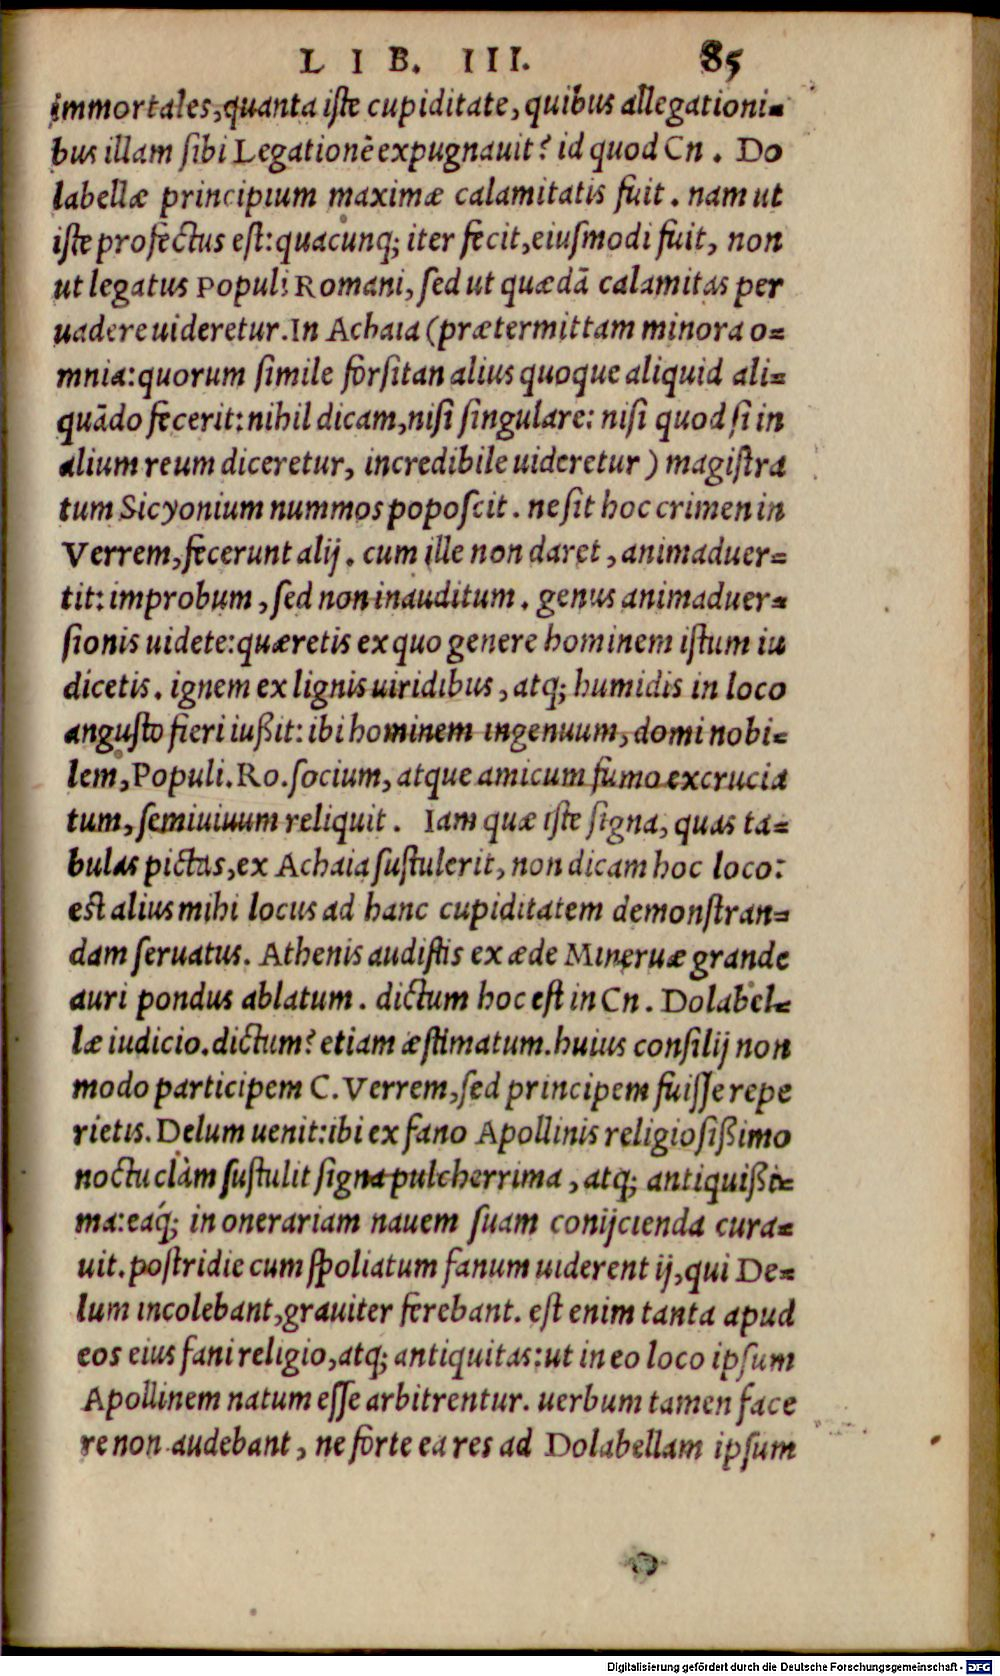 LIB. III. 85
immortales, quanta iſte cupiditate, quibus allegationi-
bus illam ſibi Legationẽ expugnauit? id quod Cn. Do
labellæ principium maximæ calamitatis fuit. nam ut
iſte profectus eſt: quacunq; iter fecit, eiuſmodi fuit, non
ut legatus Populi Romani, ſed ut quædã calamitas per
uadere uideretur. In Achaia (prætermittam minora o-
mnia: quorum ſimile forſitan alius quoque aliquid ali-
quãdo fecerit: nihil dicam, niſi ſingulare: niſi quod ſi in
alium reum diceretur, incredibile uideretur) magiſtra
tum Sicyonium nummos popoſcit. ne ſit hoc crimen in
Verrem, fecerunt alij. cum ille non daret, animaduer-
tit: improbum, ſed non inauditum. genus animaduer-
ſionis uidete: quæretis ex quo genere hominem iſtum iu
dicetis. ignem ex lignis uiridibus, atq; humidis in loco
anguſto fieri iußit: ibi hominem ingenuum, domi nobi-
lem, Populi. Ro. ſocium, atque amicum fumo excrucia
tum, ſemiuiuum reliquit. Iam quæ iſte ſigna, quas ta-
bulas pictas, ex Achaia ſuſtulerit, non dicam hoc loco:
est alius mihi locus ad hanc cupiditatem demonſtran-
dam ſeruatus. Athenis audiſtis ex æde Mineruæ grande
auri pondus ablatum. dictum hoc eſt in Cn. Dolabel-
læ iudicio. dictum? etiam æſtimatum. huius conſilij non
modo participem C. Verrem, ſed principem fuiſſe repe
rietis. Delum uenit: ibi ex fano Apollinis religioſißimo
noctu clàm ſuſtulit ſigna pulcherrima, atq; antiquißi-
ma: eaq́; in onerariam nauem ſuam conijcienda cura-
uit. poſtridie cum ſpoliatum fanum uiderent ij, qui De-
lum incolebant, grauiter ferebant. eſt enim tanta apud
eos eius fani religio, atq; antiquitas: ut in eo loco ipſum
Apollinem natum eſſe arbitrentur. uerbum tamen face
re non audebant, ne forte ea res ad Dolabellam ipſum
Digitalisierung gefördert durch die Deutsche Forschungsgemeinschaft - DFG